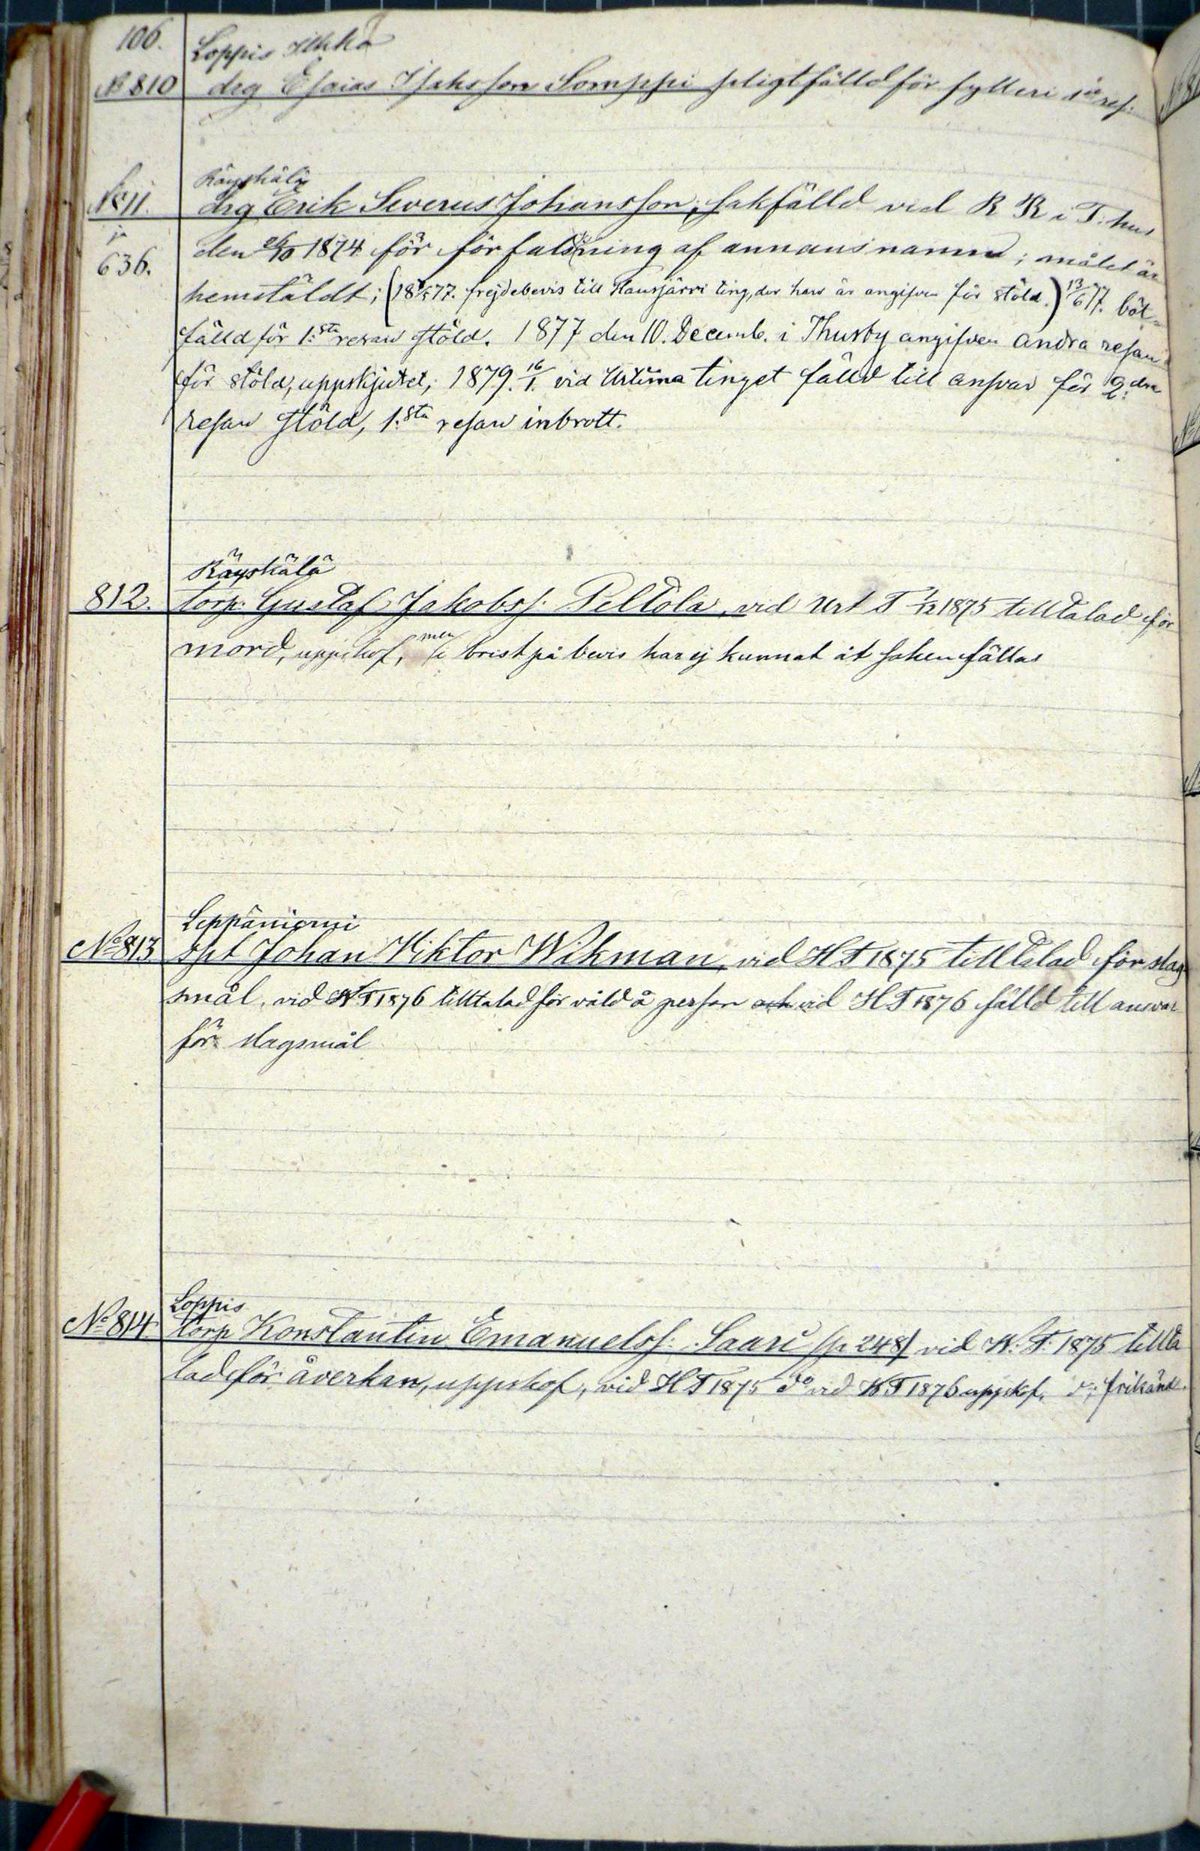 106.
Loppis Ilkka
№ 810 drg Esaias Isaksson Somppi pligtfälld för fylleri 1a res.
Räyskälä
№ 11. drg Erik Severus Johansson, sakfälld vid R R i T.hus
jr
636. den 24/10 1874 för förfalskning af annans namn; målet är
hemstäldt; (18 7/5 77. frejdebevis till Hausjärvi ting, der han är angifven för stöld.) 13/6 77. böt-
fälld för 1:sta resan stöld. 1877 den 10. Decemb. i Thusby angifven andra resan
för stöld, uppskjutet; 1879. 16/1. vid Urtima tinget fälld till ansvar för 2:dra
resan stöld, 1:sta resan inbrott.
Räyskälä
812. torp. Gustaf Jakobss: Peltola, vid Urt T 7/12 1875 tilltalad för
mord, uppskof, men i brist på bevis har ej kunnat åt saken fällas
Leppäniemi
№ 813 spt Johan Viktor Wikman, vid H T 1875 tilltalad för slags
mål, vid W T 1876 tilltalad för våld å person och vid H T 1876 fälld till ansvar
för slagsmål
Loppis
№ 814 torp Konstantin Emanuelss: Saari (p 248) vid W. T. 1875 tillta
lad för åverkan, uppskof, vid H T 1875 do vid W T 1876 uppskof, frikänd.